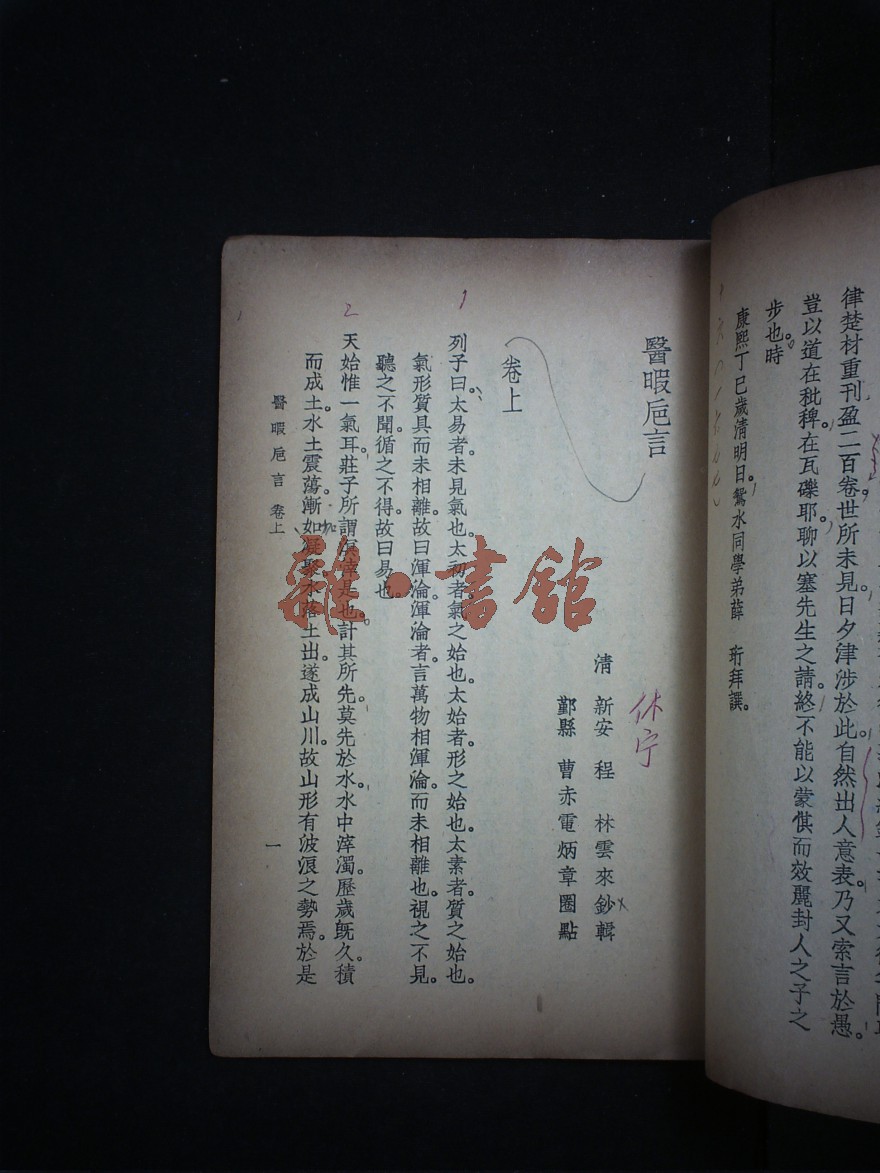 律楚材重刊盈二百卷世所未見。日夕津涉於此。自然出人意表。乃又索言於愚。
豈以道在秕稗。在瓦礫耶。聊以塞先生之請。終不能以蒙倛而效麗封人之子之
步也。時
康熙丁巳歲清明日。鴛水同學弟薛 珩拜譔。
醫暇巵言
休宁
清 新安 程 林雲來鈔輯
鄞縣 曹赤電炳章圈點
卷上
1
列子曰。太易者。未見氣也。太初者。氣之始也。太始者。形之始也。太素者。質之始也。
氣形質具而未相離。故曰渾淪。渾淪者。言萬物相渾淪。而未相離也。視之不見。
聽之不聞。循之不得。故曰易也。
2
天始惟一氣耳。莊子所謂溟涬是也。計其所先。莫先於水。水中滓濁。歷歲旣久。積
而成土。水土震蕩。漸如凝聚。水落土出。遂成山川。故山形有波浪之勢焉。於是
醫暇巵言 卷上
一
雜·書館